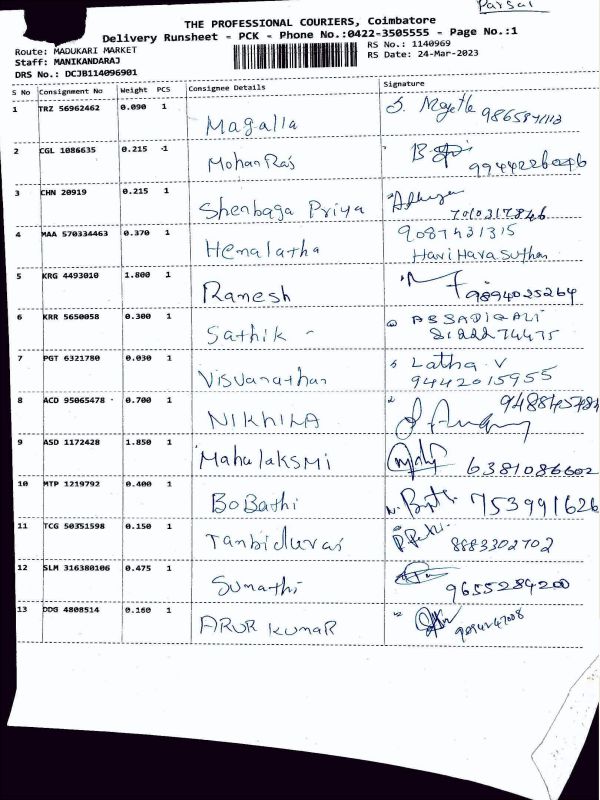 Parsal
THE PROFESSIONAL COURIERS, Coimbatore
Delivery Runsheet - PCK - Phone No.:0422-3505555 - Page No.:1
Route: MADUKARI MARKET
RS No.: 1140969
Staff: MANIKANDARAJ
RS Date: 24-Mar-2023
DRS No.: DCJB114096901
S No Consignment No Weight PCS Consignee Details Signature
1 TRZ 56962462 0.090 1 Magalla
2 CGL 1086635 0.215 1 Mohan Raj
3 CHN 20919 0.215 1 Shenbaga Priya
4 MAA 570334463 0.370 1 Hemalatha 9087431315
Hari Hara Suthan
5 KRG 4493010 1.800 1 Ramesh 9894025264
6 KRR 5650058 0.300 1 Sathik - ASSADIQALI
7 PGT 6321780 0.030 1 Visvanathan Latha.V
9442015955
8 ACD 95065478 0.700 1 NIKHILA
9 ASD 1172428 1.850 1 Mahalaksmi 6381086602
10 MTP 1219792 0.400 1 BoBathi 753991626
11 TCG 50351598 0.150 1 Tanbidurai 8883302702
12 SLM 316380106 0.475 1 Sumathi 9655284200
13 DDG 4808514 0.160 1 ARUR KUMAR